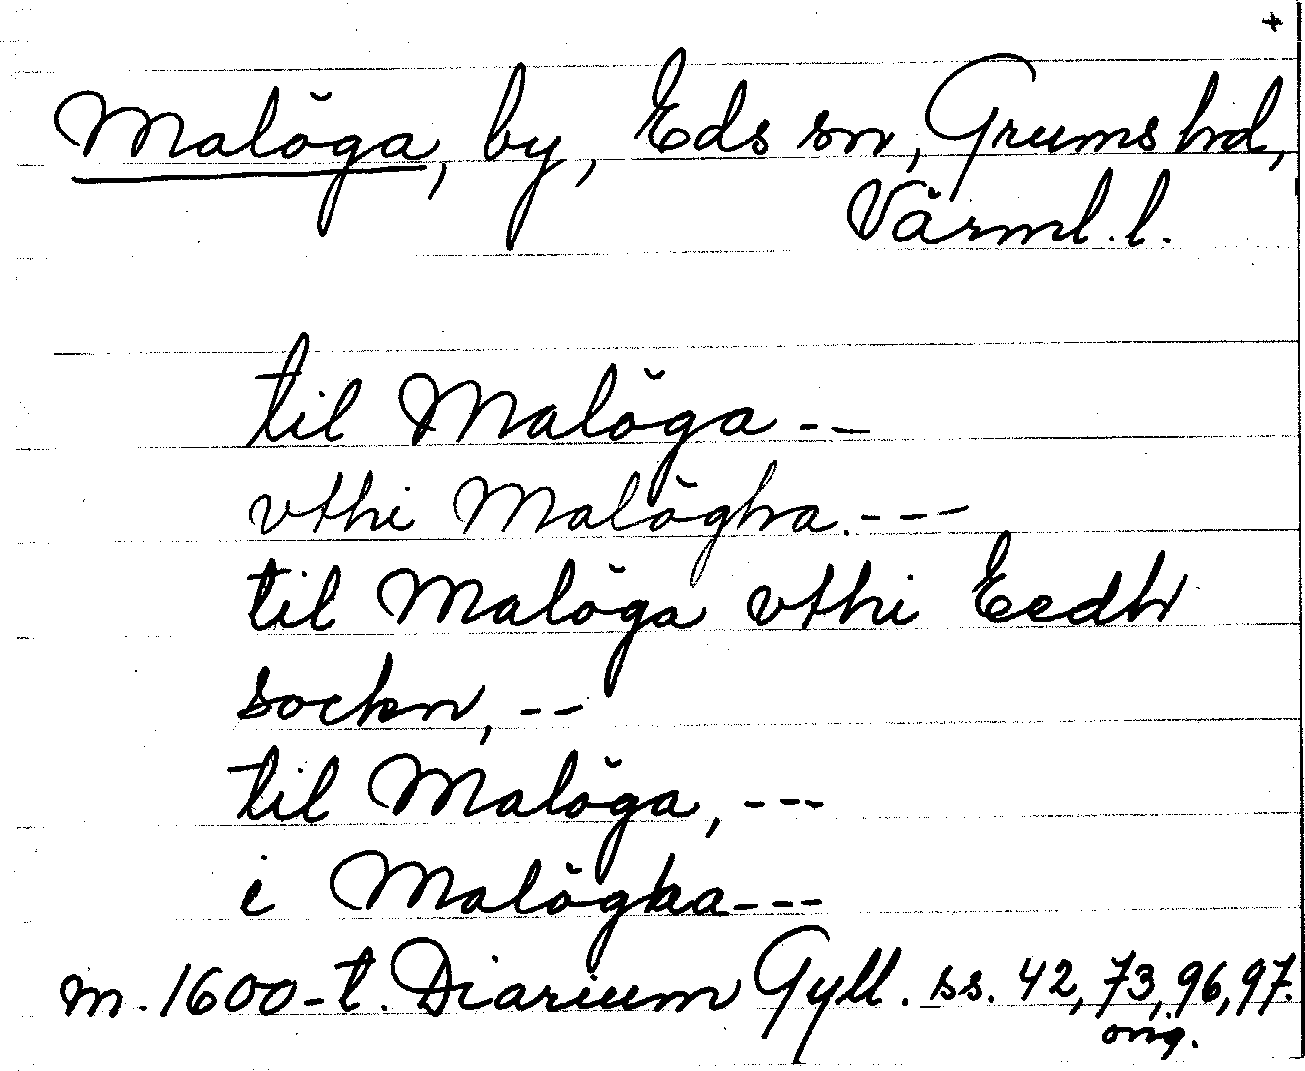 +
Malöga, by, Eds sn, Grums hd,
Värml. l.
til Malöga --
vthi Malögha. ---
til Malöga vthi Eedh
sockn, --
til Malöga, ---
i Malögha---
m. 1600-t. Diarium Gyll. ss. 42, 73, 96, 97.
orig.